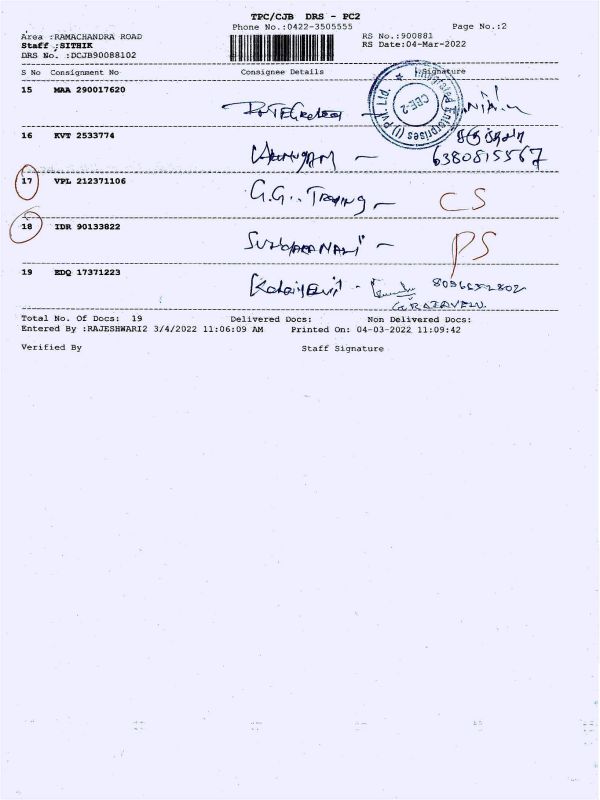 TPC/CJB DRS - PC2
Phone No.:0422-3505555 Page No.:2
Area :RAMACHANDRA ROAD RS No.:900881
Staff :SITHIK RS Date:04-Mar-2022
DRS No. :DCJB90088102
S No Consignment No Consignee Details Signature
15 MAA 290017620
16 KVT 2533774
6380815567
17 VPL 212371106 G.G.. CS
18 IDR 90133822 PS
19 EDQ 17371223
Total No. Of Docs: 19 Delivered Docs: Non Delivered Docs:
Entered By :RAJESHWARI2 3/4/2022 11:06:09 AM Printed On: 04-03-2022 11:09:42
Verified By Staff Signature
Integrated Enterprises (I) Pvt. Ltd.
CBE-2